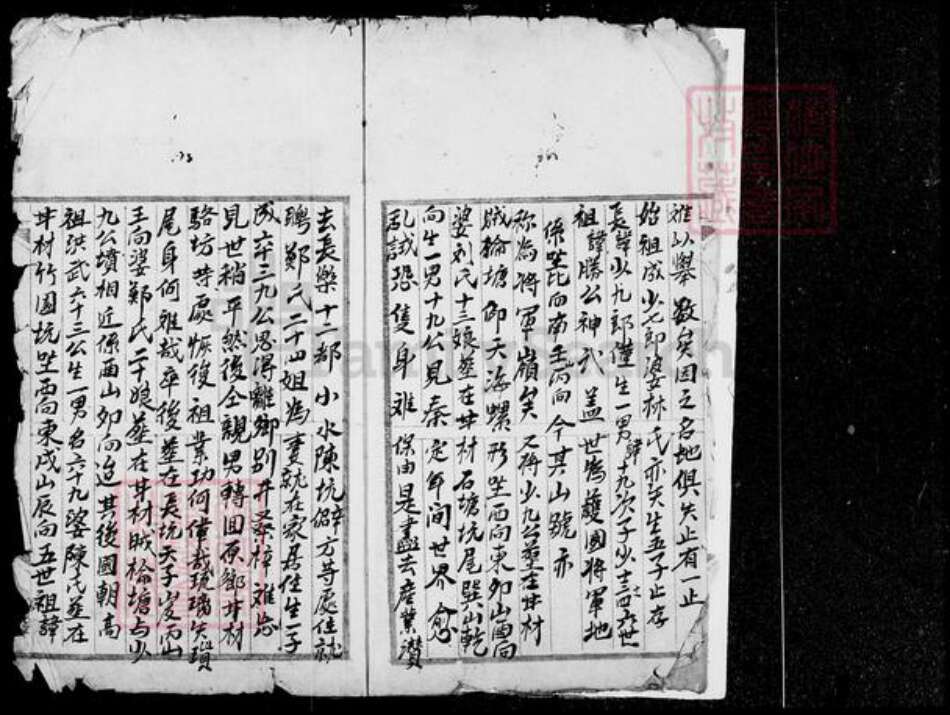 難以舉数矣因之名地俱失止有一止
始祖成少七郎婆林氏亦失生五子止存
長諱少九郎僅生一男諱十九次子少十三四六世
祖諱勝公神武蓋世為護國將軍地
係坐北向南壬丙向今其山號亦
称為將軍嶺矣又稱少九公董主井材
賊輪塘仰天海螺形坐西向東卯山酉向
婆刘氏十三娘葬在井材石塘坑尾巽山乾
向生一男十九公見秦定年間世界愈
乱誠恐隻身难保由是盡去産業潜
去長樂十二都小水陳坑僻方等處住就
聘鄭氏二十四姐為妻就在家居住生一子
成六十三九公思得離鄉别井桑梓难忘
見世稍平然後仝親男轉回原鄉井材
駱坊等處恢復祖業功何偉哉琉璃失瑣
尾身何难哉卒後葬在長坑天子岌丙山
壬向婆鄭氏二十娘葬在井材賊輪塘与少
九公墳相近係酉山卯向迨其後國朝高
祖洪武六十三公生一男名六十九婆陳氏葬在
井材竹園坑坐西向東戌山辰向五世祖諱